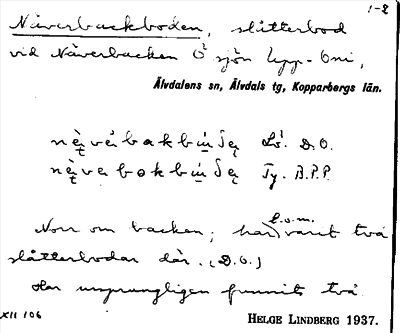 1-2
Näverbackboden, slåtterbod
vid Näverbacken Ö sjön Upp-Oni,
Älvdalens sn, Älvdals tg, Kopparbergs län.
Lö. D.O.
Ty. B.P.P.
t.o.m.
Norr om backen; har varit två
slåtterbodar där. (D.O.)
Har ursprungligen funnits två
XII 106
HELGE LINDBERG 1937.